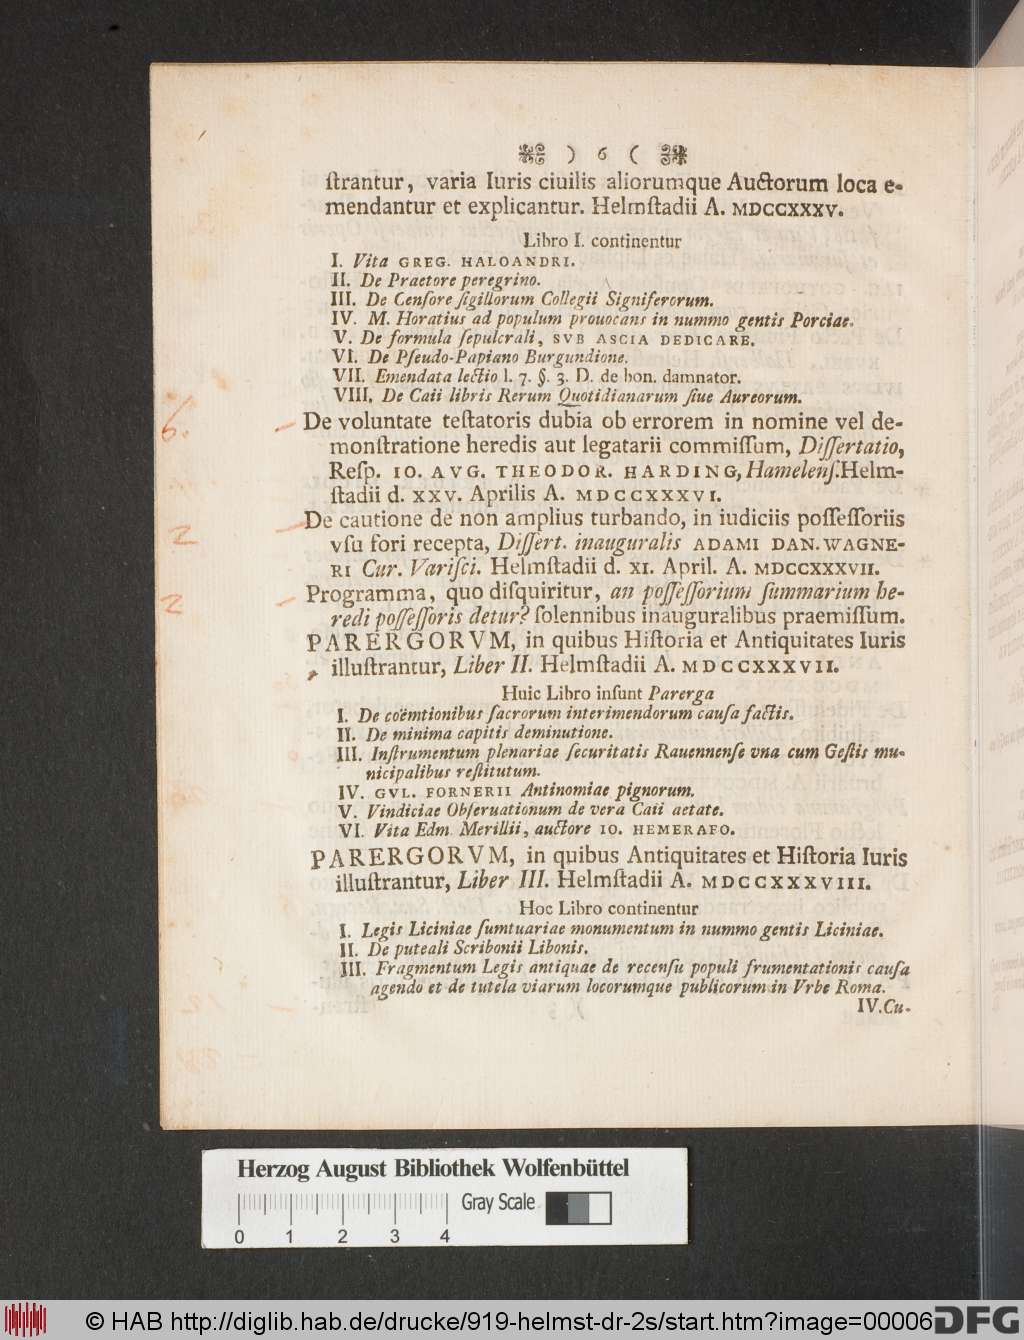 ) 6 (
ſtrantur, varia Iuris ciuilis aliorumque Auctorum loca e-
mendantur et explicantur. Helmſtadii A. MDCCXXXV.
Libro I. continentur
I. Vita GREG. HALOANDRI.
II. De Praetore peregrino.
III. De Cenſore ſigillorum Collegii Signiferorum.
IV. M. Horatius ad populum prouocans in nummo gentis Porciae.
V. De formula ſepulcrali, SVB ASCIA DEDICARE.
VI. De Pſeudo-Papiano Burgundione.
VII. Emendata lectio l. 7. §. 3. D. de bon. damnator.
VIII. De Caii libris Rerum Quotidianarum ſiue Aureorum.
6.
De voluntate teſtatoris dubia ob errorem in nomine vel de-
monſtratione heredis aut legatarii commiſſum, Diſſertatio,
Reſp. IO. AVG. THEODOR. HARDING, Hamelenſ. Helm-
ſtadii d. XXV. Aprilis A. MDCCXXXVI.
De cautione de non amplius turbando, in iudiciis poſſeſſoriis
2
vſu fori recepta, Diſſert. inauguralis ADAMI DAN. WAGNE-
RI Cur. Variſci. Helmſtadii d. XI. April. A. MDCCXXXVII.
2
Programma, quo diſquiritur, an poſſeſſorium ſummarium he-
redi poſſeſſoris detur? ſolennibus inauguralibus praemiſſum.
PARERGORVM, in quibus Hiſtoria et Antiquitates Iuris
illuſtrantur, Liber II. Helmſtadii A. MDCCXXXVII.
Huic Libro inſunt Parerga
I. De coëmtionibus ſacrorum interimendorum cauſa factis.
II. De minima capitis deminutione.
III. Inſtrumentum plenariae ſecuritatis Rauennenſe vna cum Geſtis mu-
nicipalibus reſtitutum.
IV. GVL. FORNERII Antinomiae pignorum.
V. Vindiciae Obſeruationum de vera Caii aetate.
VI. Vita Edm. Merillii, auctore IO. HEMERAEO.
PARERGORVM, in quibus Antiquitates et Hiſtoria Iuris
illuſtrantur, Liber III. Helmſtadii A. MDCCXXXVIII.
Hoc Libro continentur
I. Legis Liciniae ſumtuariae monumentum in nummo gentis Liciniae.
II. De puteali Scribonii Libonis.
III. Fragmentum Legis antiquae de recenſu populi frumentationis cauſa
agendo et de tutela viarum locorumque publicorum in Vrbe Roma.
IV. Cu-
Herzog August Bibliothek Wolfenbüttel
Gray Scale
0 1 2 3 4
© HAB http://diglib.hab.de/drucke/919-helmst-dr-2s/start.htm?image=00006
DFG